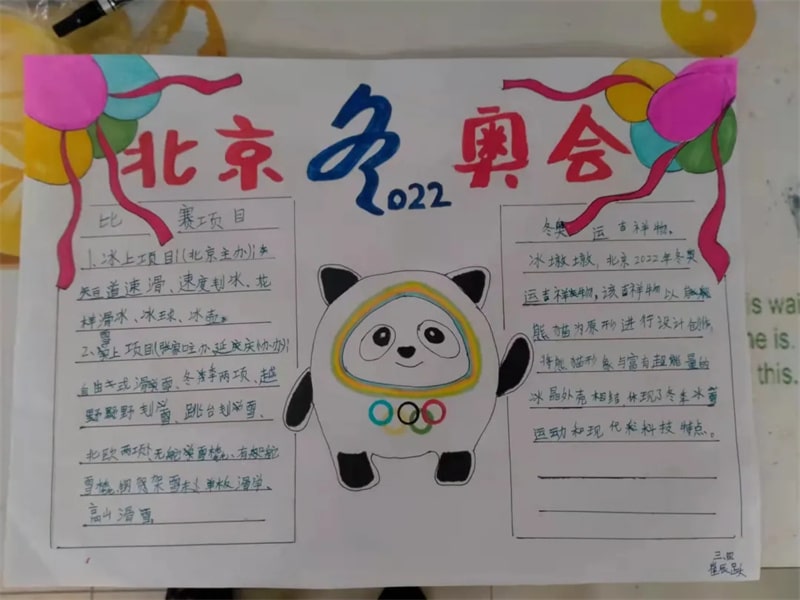 北京冬奥会
2022
比赛项目
1、冰上项目(北京主办):
短道速滑、速度划冰、花
样滑冰、冰球、冰壶。
2、雪上项目(张家口主办,延庆协办):
自由式滑雪、冬季两项、越
野划雪、跳台划雪、
北欧两项、无舵雪橇、有舵
雪橇、钢架雪车、单板滑雪、
高山滑雪
冬奥运吉祥物。
冰墩墩,北京2022年冬奥
运吉祥物。该吉祥物以
熊猫为原形进行设计创作,
将熊猫形象与富有超能量的
冰晶外壳相结,体现了冬季冰雪
运动和现代科技特点。
is wai
ne is.
this.
三、四